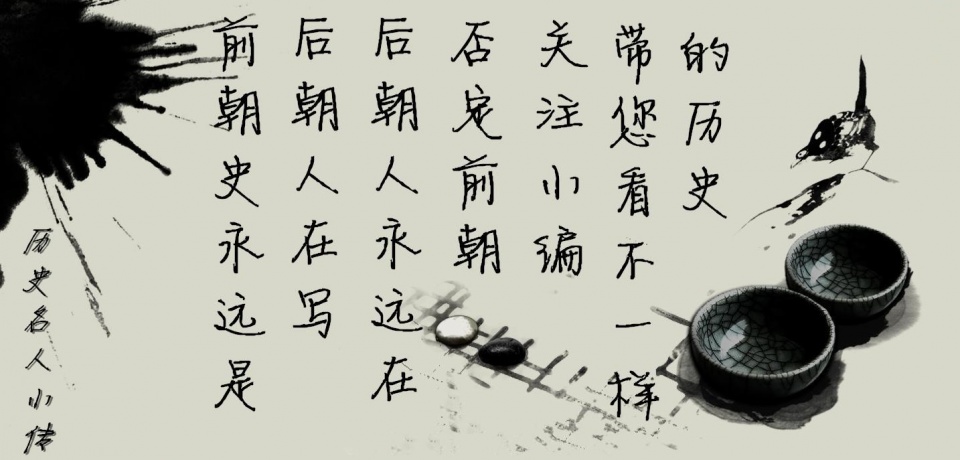 前朝史永远是
后朝人在写
后朝人永远在
否定前朝
关注小编
带您看不一样
的历史
历史名人小传